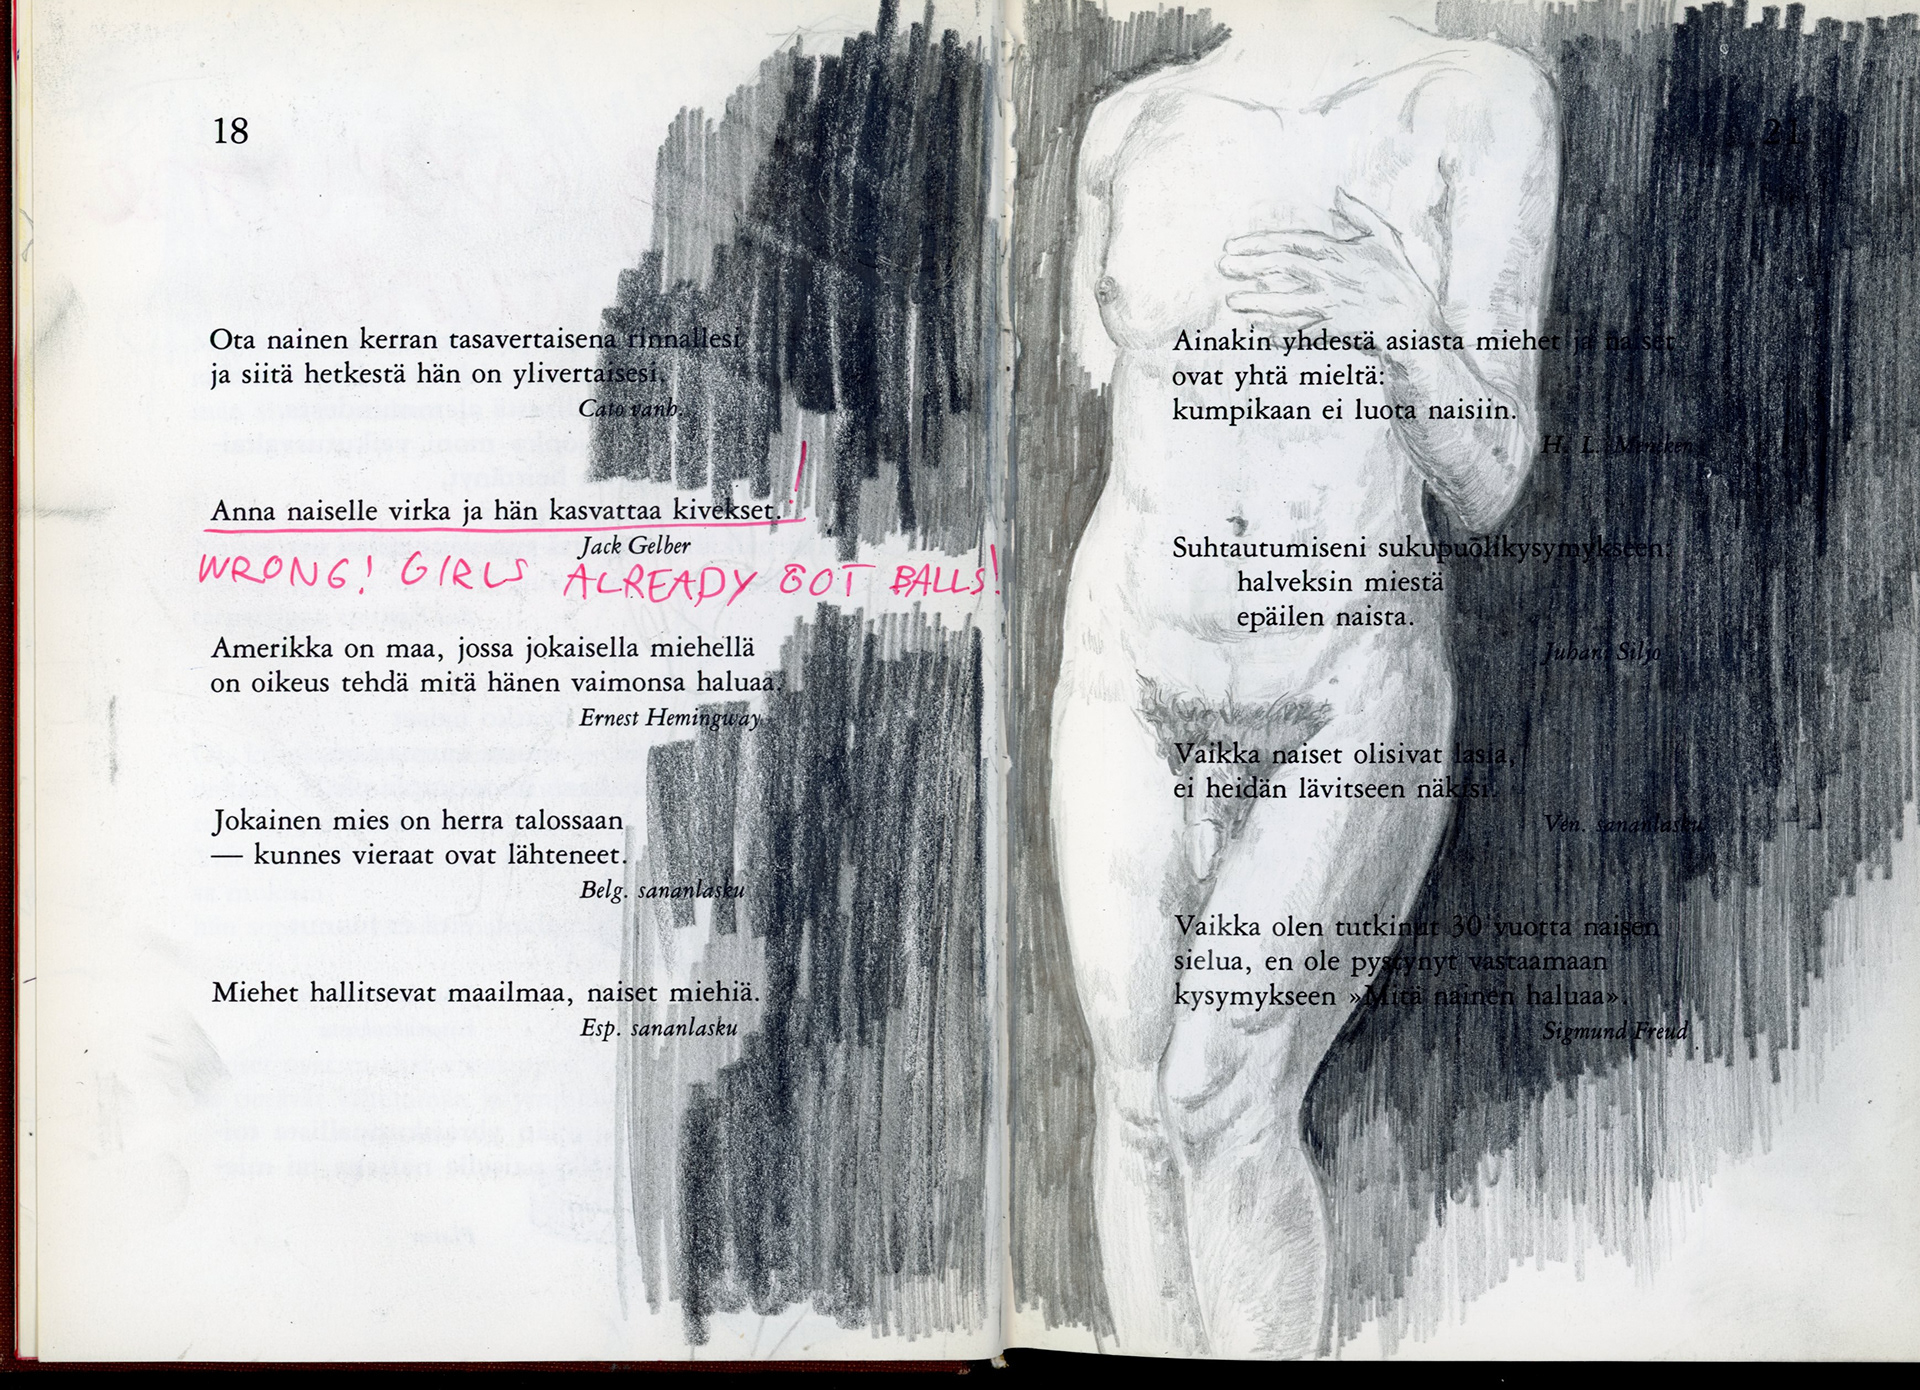 18
Ota nainen kerran tasavertaisena rinnallesi
ja siitä hetkestä hän on ylivertaisesi.
Cato vanh.
Anna naiselle virka ja hän kasvattaa kivekset. !
Jack Gelber
WRONG! GIRLS ALREADY GOT BALLS!
Amerikka on maa, jossa jokaisella miehellä
on oikeus tehdä mitä hänen vaimonsa haluaa.
Ernest Hemingway
Jokainen mies on herra talossaan
— kunnes vieraat ovat lähteneet.
Belg. sananlasku
Miehet hallitsevat maailmaa, naiset miehiä.
Esp. sananlasku
21
Ainakin yhdestä asiasta miehet ja naiset
ovat yhtä mieltä:
kumpikaan ei luota naisiin.
H. L. Mencken
Suhtautumiseni sukupuolikysymykseen:
halveksin miestä
epäilen naista.
Juhani Siljo
Vaikka naiset olisivat lasia,
ei heidän lävitseen näkisi.
Ven. sananlasku
Vaikka olen tutkinut 30 vuotta naisen
sielua, en ole pystynyt vastaamaan
kysymykseen »Mitä nainen haluaa».
Sigmund Freud